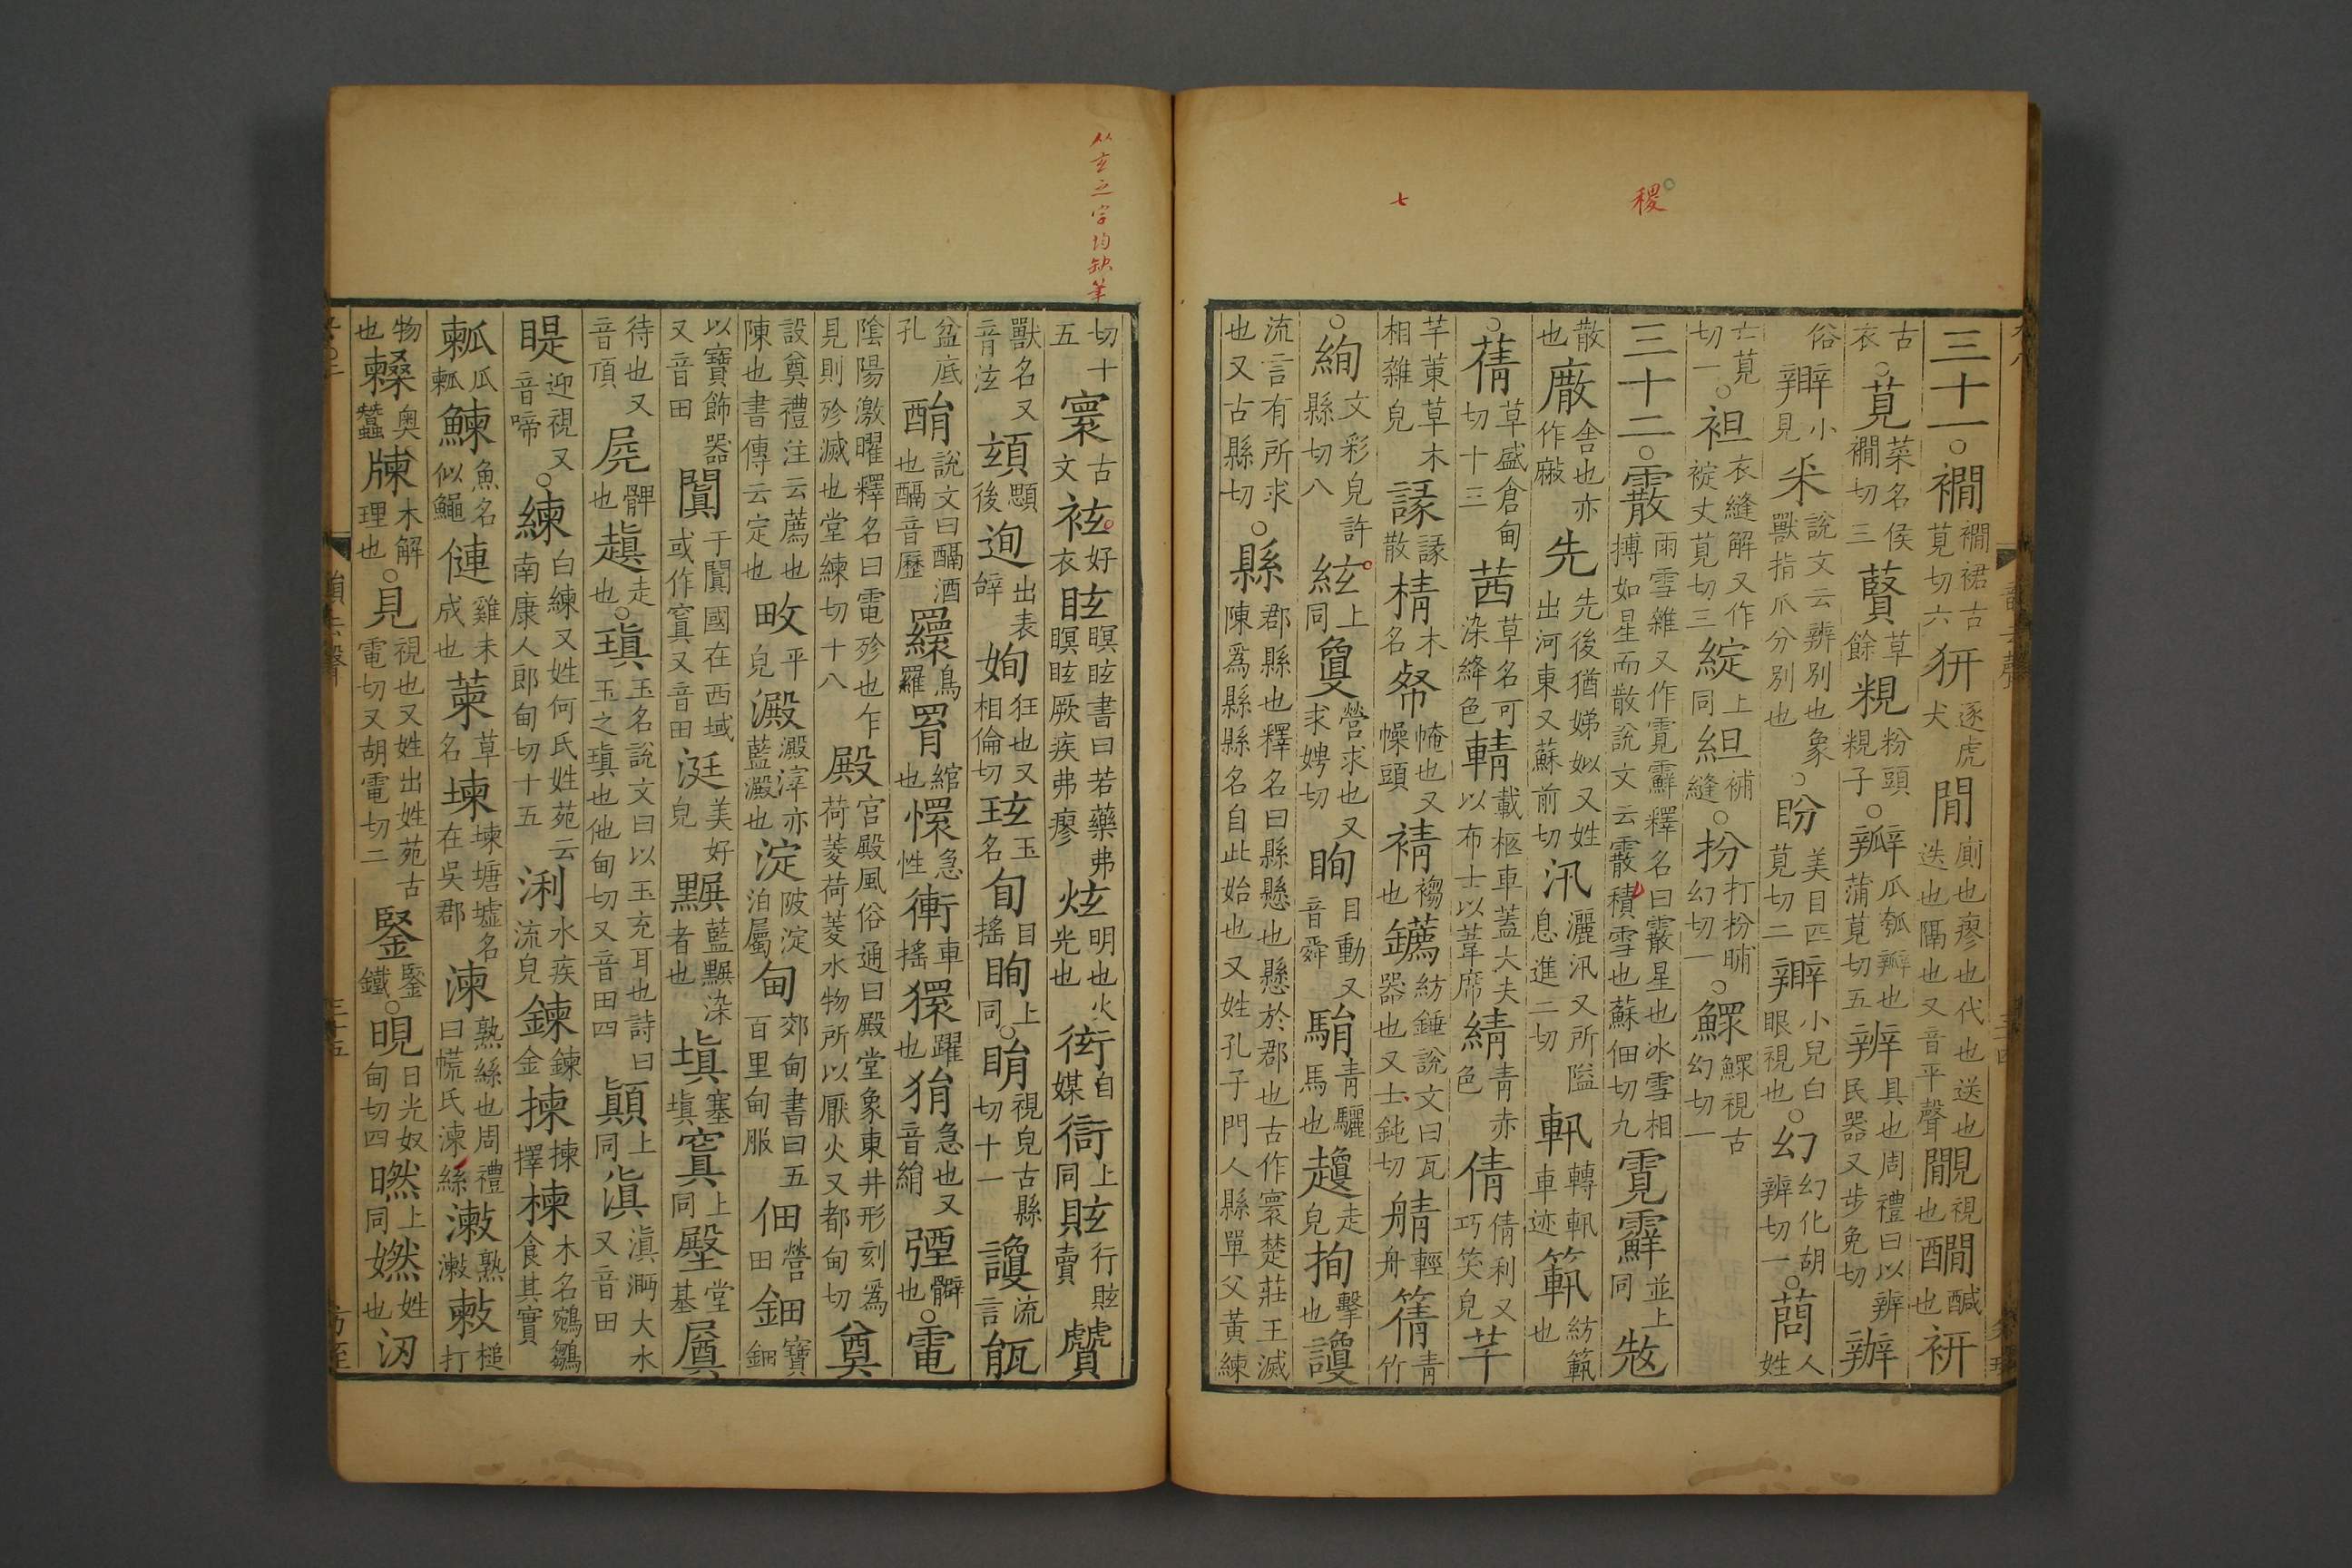 稷
七
三十一○襇襇裙古莧切六㹂逐虎犬閒廁也瘳也代也送也迭也隔也又音平聲覸視也醶醎也裄
古衣○莧菜名侯襇切三藖草餘粯粉頭粯子○瓣瓜瓠瓣也蒲莧切五辨具也周禮曰以辨民器又步免切辦
俗䀎小見釆說文云辨別也象獸指爪分別也○盼美目匹莧切二䀎小兒白眼視也○幻幻化胡辨切一○䕞人姓
亡莧切一○袒衣縫解又作䘺丈莧切三綻上同䋎補縫○扮打扮晡幻切一○鰥鰥視古幻切一
三十二○霰雨雪雜又作霓䨘釋名曰霰星也冰雪相搏如星而散說文云霰積雪也蘇佃切九霓䨘並上同㪚
散也廒舍也亦作厫先先後猶娣姒又姓出河東又蘇前切汛灑汛又所隘息進二切軐轉軐車迹䉣紡䉣也
○蒨草盛倉甸切十三茜草名可染絳色輤載柩車蓋大夫以布士以葦席綪青赤色倩倩利又巧笑皃芊
芊䔰草木相雜皃䜌䜌散棈木名帤㡋也又幧頭䙺襐也䥝紡錘說文曰瓦器也又士鈍切䑶輕舟篟青竹
○絢文彩皃許縣切八絃上同敻營求也又求娉切眴目動又音舜駽青驪馬也趬走皃拘擊也讂
流言有所求也又古縣切○縣郡縣也釋名曰縣懸也懸於郡也古作寰楚莊王滅陳為縣縣名自此始也又姓孔子門人縣單父黃練
从玄之字均缺筆
切十五寰古文袨好衣眩瞑眩書曰若藥弗瞑眩厥疾弗瘳炫明也火光也衒自媒衏上同䝮行䝮賣贙
獸名又音泫䫂後顋迿出表辝姰狂也又相倫切玹玉名旬目搖眴上同○睊視皃古縣切十一讂流言瓹
盆底孔酳說文曰醑酒也醑音歷羂鳥羅罥綰也懁急性衠車搖獧躍也狷急也又音絹㢾彌也○電
陰陽激曜釋名曰電殄也乍見則殄滅也堂練切十八殿宮殿風俗通曰殿堂象東井形刻為荷菱荷菱水物所以厭火又都甸切奠
設奠禮注云薦也陳也書傳云定也畋平皃澱澱滓亦藍澱也淀陂淀泊屬甸郊甸書曰五百里甸服佃營田鈿寶鈿
以寶飾器又音田闐于闐國在西域或作窴又音田涏美好皃黰藍黰染者也塡塞塡窴上同壂堂基屪
待也又音頂屍髀也趚走也○瑱玉名說文曰以玉充耳也詩曰玉之瑱也他甸切又音田四顚上同滇滇㴐大水又音田
睼迎視又音啼○練白練又姓何氏姓苑云南康人郎甸切十五浰水疾流皃鍊鍊金揀揀擇楝木名鵷鶵食其實
㼑瓜㼑鰊魚名似鱦僆雞未成也萰草名堜堜塘墟名在吳郡湅熟絲也周禮曰㡛氏湅絲㶑熟㶑敕槌打
物也㯥輿蠶㱥木解理也○見視也又姓出姓苑古電切又胡電切二鋻鋻鐵○晛日光奴甸切四㬗上同嬿姓也涊